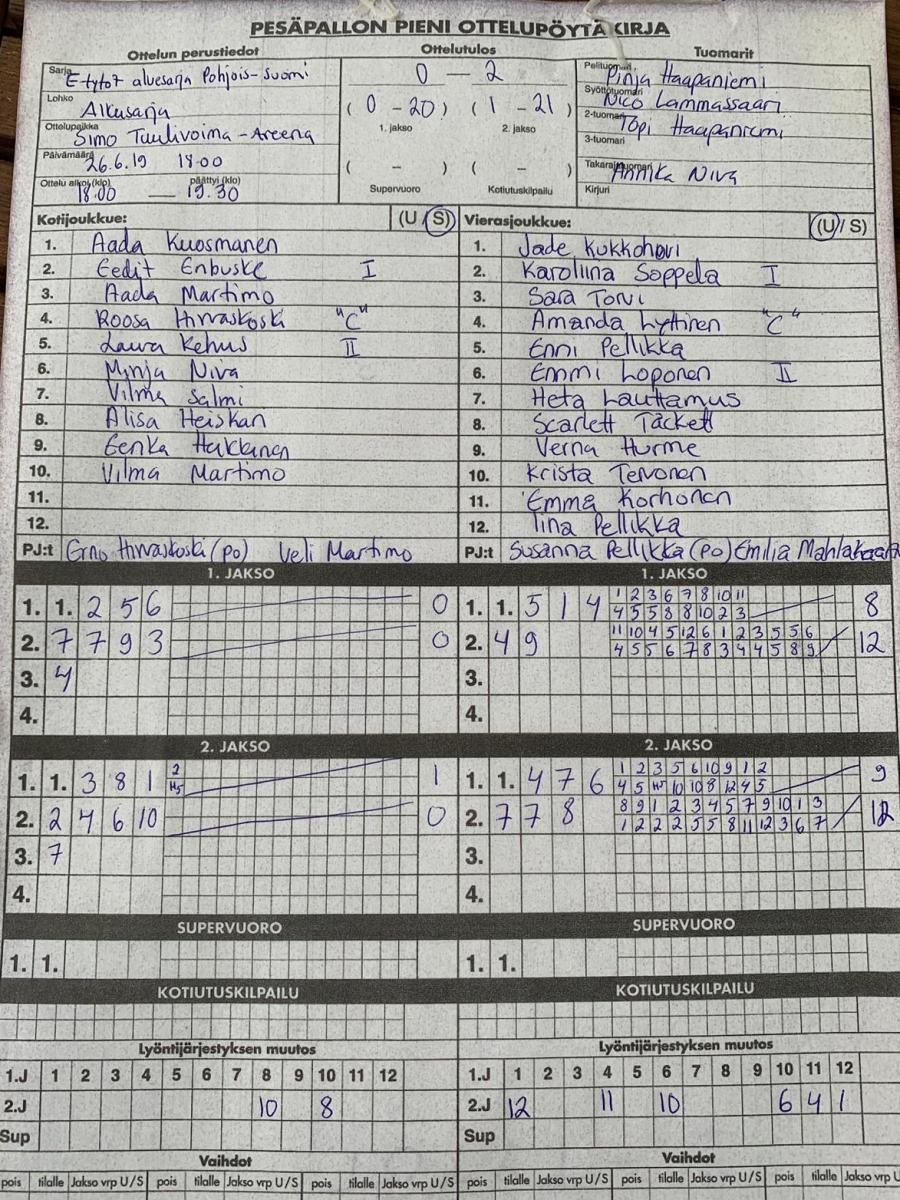 PESÄPALLON PIENI OTTELUPÖYTÄKIRJA
Ottelun perustiedot
Sarja E-tytöt aluesarja Pohjois-Suomi
Lohko Alkusarja
Ottelupaikka Simo Tuulivoima-Areena
Päivämäärä 26.6.19 18.00
Ottelu alkoi (klo) päättyi (klo)
18.00 — 19.30
Ottelutulos
0 — 2
( 0 - 20 ) ( 1 - 21 )
1. jakso 2. jakso
( - ) ( - )
Supervuoro Kotiutuskilpailu
Tuomarit
Pelituomari Pinja Haapaniemi
Syöttötuomari Nico Lammassaari
2-tuomari Topi Haapaniemi
3-tuomari
Takarajatuomari Annika Niva
Kirjuri
Kotijoukkue: (U / S)
1. Aada Kuosmanen
2. Eedit Enbuske I
3. Aada Martimo
4. Roosa Hirvaskoski "C"
5. Laura Kehus II
6. Minja Niva
7. Vilma Salmi
8. Alisa Heiskan
9. Eenka Hakkinen
10. Vilma Martimo
11.
12.
PJ:t Erno Hirvaskoski (po) Veli Martimo
Vierasjoukkue: (U / S)
1. Jade Kukkohovi
2. Karoliina Soppela I
3. Sara Torvi
4. Amanda Lyttinen "C"
5. Enni Pellikka
6. Emmi Loponen II
7. Heta Lauttamus
8. Scarlett Täckett
9. Verna Hurme
10. Krista Tervonen
11. Emma Korhonen
12. Iina Pellikka
PJ:t Susanna Pellikka (po) Emilia Mahlakaarto
1. JAKSO
1. 1. 2 5 6 0
2. 7 7 9 3 0
3. 4
4.
1. JAKSO
1 2 3 6 7 8 10 11
1. 1. 5 1 4 8
4 5 5 8 8 10 2 3
11 10 4 5 12 6 1 2 3 5 5 6
2. 4 9 12
4 5 5 6 7 8 3 4 4 5 8 9
3.
4.
2. JAKSO
2
1. 1. 3 8 1 1
H5
2. 2 4 6 10 0
3. 7
4.
2. JAKSO
1 2 3 5 6 10 9 1 2
1. 1. 4 7 6 9
4 5 H5 10 10 8 12 4 5
8 9 1 2 3 4 5 7 9 10 1 3
2. 7 7 8 12
1 2 2 2 5 5 8 11 12 3 6 7
3.
4.
SUPERVUORO
1. 1.
SUPERVUORO
1. 1.
KOTIUTUSKILPAILU
KOTIUTUSKILPAILU
Lyöntijärjestyksen muutos
1.J 1 2 3 4 5 6 7 8 9 10 11 12
2.J 10 8
Sup
Lyöntijärjestyksen muutos
1.J 1 2 3 4 5 6 7 8 9 10 11 12
2.J 12 11 10 6 4 1
Sup
Vaihdot
pois tilalle Jakso vrp U/S pois tilalle Jakso vrp U/S pois tilalle Jakso vrp U/S
Vaihdot
pois tilalle Jakso vrp U/S pois tilalle Jakso vrp U/S pois tilalle Jakso vrp U/S